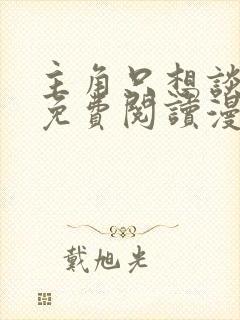 主角只想談
免費閱讀漫
戴旭光